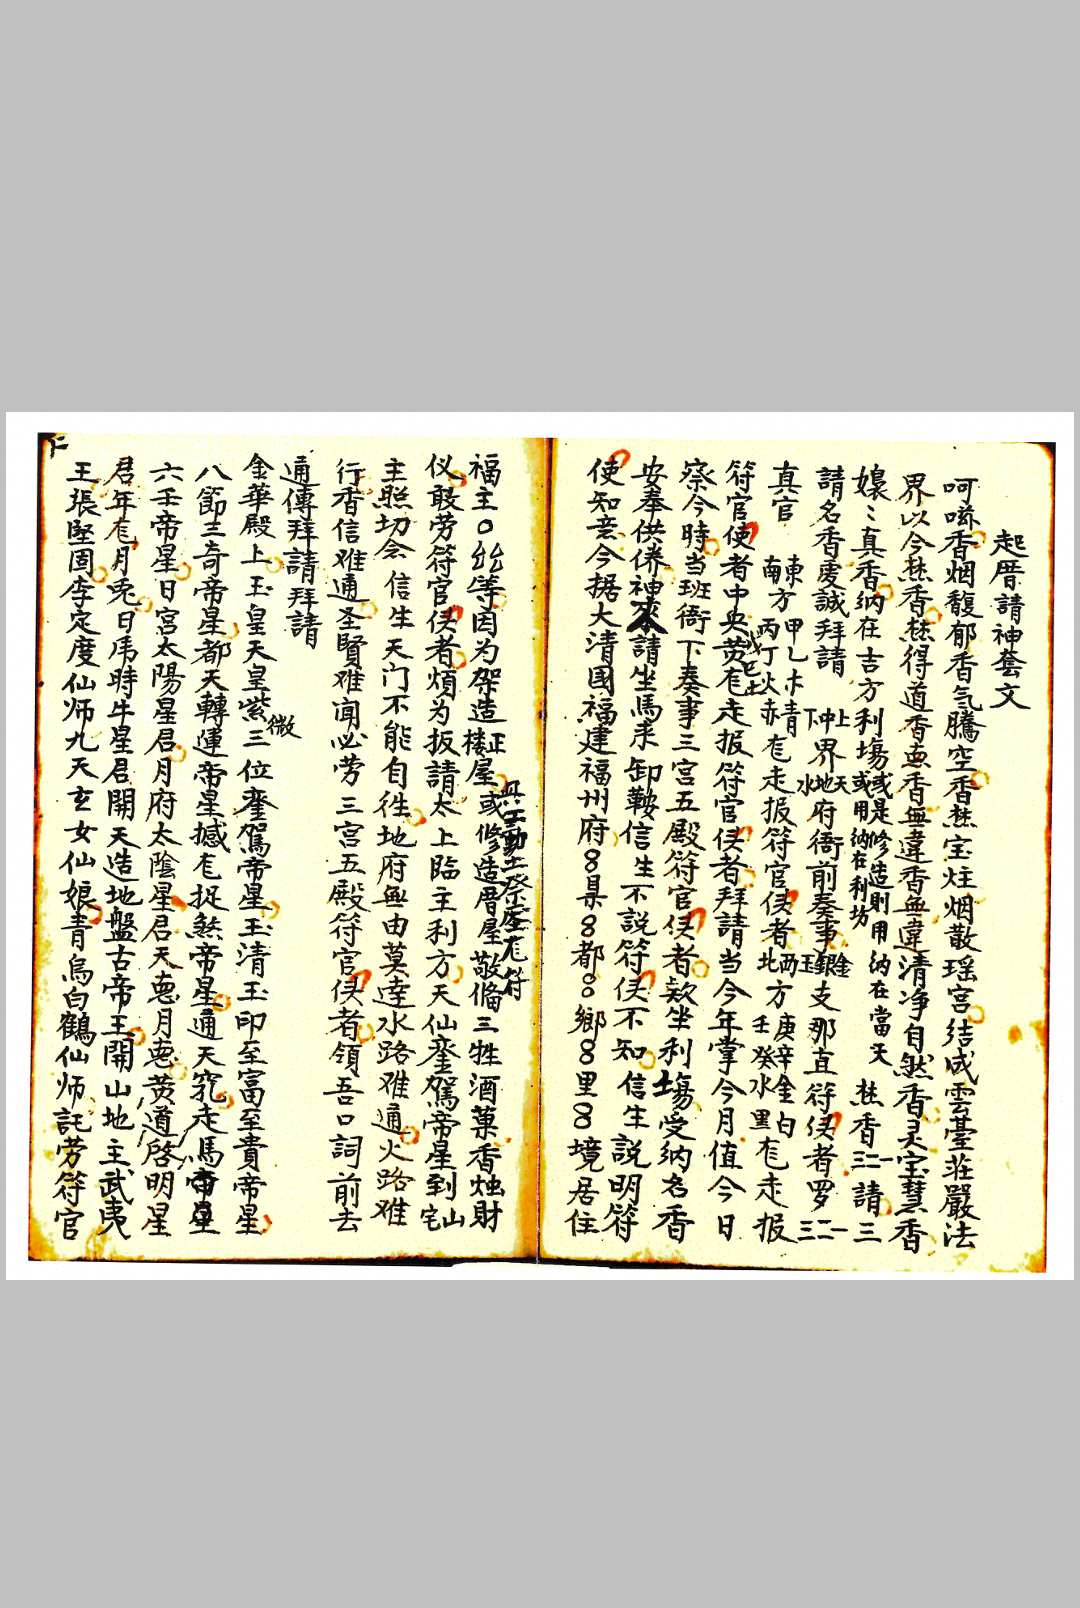 起厝請神套文
呵嗞香烟馥郁香気騰空香焚宝炷烟散瑶宮结成雲臺莊嚴法
界以今焚香焚得道香惠香無違香無違清净自然香灵宝慧香
嬝〻真香納在吉方利塲或是修造則用納在當天 炷香三二一請三
或用納在利坊
請名香虔誠拜請 上中下界天地水府衙前奏事金銀玉支那直符使者罗一二三
真官 東方甲乙木青 走报符官使者西方庚辛金白 走报
南方丙丁火赤 北方壬癸水黑
符官使者中央戊己土 走报符官使者拜請当今年掌今月值今日
察今時当班衙下奏事三宮五殿符官使者欵坐利塲受納名香
安奉供俻神來請坐馬来卸鞍信生不説符使不知信生説明符
使知意今据大清國福建福州府8縣8都8鄉8里8境居住
福主〇公等因为架造楼屋或修造厝屋敬俻三牲酒菓香烛財
仪敢劳符官使者煩为扳請太上临主利方天仙銮駕帝星到山宅
主照切会信生天门不能自徃地府無由莫逹水路难通火路难
行香信难通圣賢难闻必劳三宮五殿符官使者領吾口詞前去
通傳拜請拜請
金華殿上玉皇天皇紫微三位銮駕帝星玉清玉印至富至貴帝星
八節三奇帝星都天轉運帝星撼捉煞帝星通天竅走馬帝星
六壬帝星日宮太陽星君月府太陰星君天惠月惠黄道啓明星
君年月兎日時牛星君開天造地盤古帝王開山地主武夷
王張堅固李定度仙师九天玄女仙娘青鳥白鶴仙师託劳符官